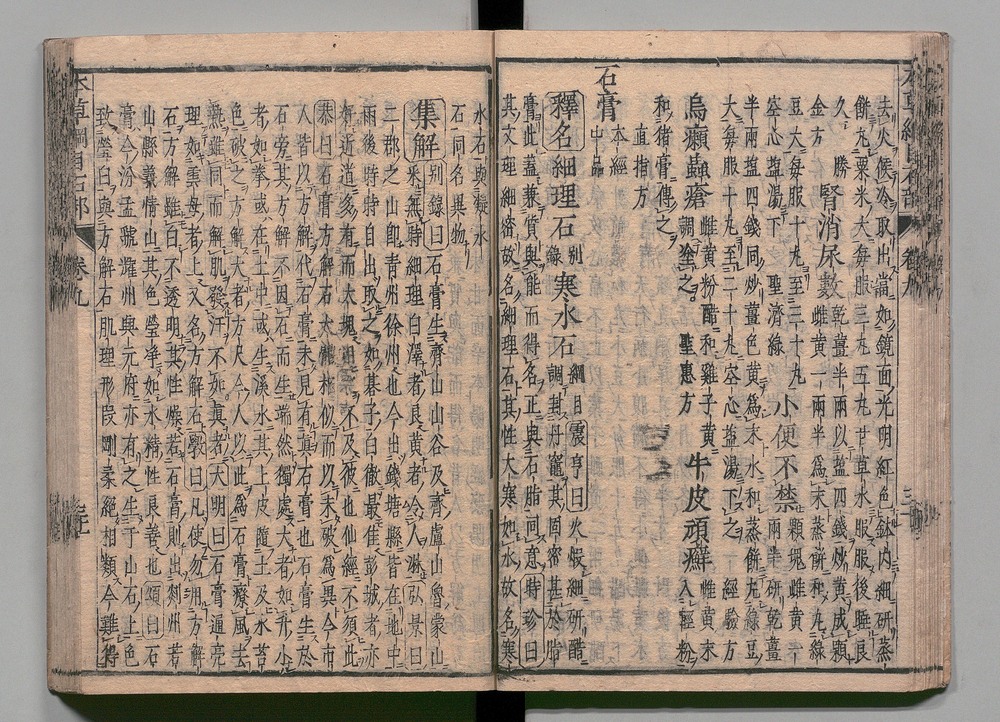 去火候冷取出當如鏡面光明紅色鉢內細研蒸
餅丸粟米大每服三丸五丸甘草水服服後睡良
久 勝
金方 腎消尿數 乾薑半兩以鹽四錢炒黃成顆雌黃一兩半為末蒸餅和丸綠
豆大每服十丸至三十丸
空心鹽湯下 聖濟錄 小便不禁 顆塊雌黃一兩半研乾薑
半兩鹽四錢同炒薑色黃為末水和蒸餅丸綠豆
大每服十丸至二十丸空心鹽湯下之 經驗方
烏癩蟲瘡 雌黃粉醋和雞子黃調塗之 聖惠方 牛皮頑癬 雌黃末入輕粉
和猪膏傅之
直指方
石膏 本經中品
釋名 細理石 別錄 寒水石 綱目 震亨曰火煅細研醋
調封丹竈其固密甚於脂
膏此蓋兼質與能而得名正與石脂同意時珍曰
其文理細密故名細理石其性大寒如水故名寒
水石與凝水
石同名異物
集解 別錄曰石膏生齊山山谷及齊盧山魯蒙山
采無時細理白澤者良黃者令人淋弘景曰
二郡之山即青州徐州也今出錢塘縣皆在地中
雨後時時自出取之如棊子白徹最佳彭城者亦
好近道多有而大塊 不及彼也仙經不須此
恭曰石膏方解石大體相似而以未破為異今市
人皆以方解代石膏未見有真石膏也石膏生於
石旁其方解不因石而生端然獨處大者如升小
者如拳或在土中或生溪水其上皮隨土及水苔
色破之方解大者方尺今人以此為石膏療風去
熱雖同而解肌發汗不如真者大明曰石膏通亮
理如雲母者上又名方解石斅曰凡使勿用方解
石方解雖白不透明其性燥若石膏則出剡州茗
山縣義情山其色瑩淨如水精性良善也頌曰石
膏今汾孟虢耀州興元府亦有之生于山石上色
致瑩白與方解石肌理形段剛柔絕相類今難得
本草綱目石部 卷九